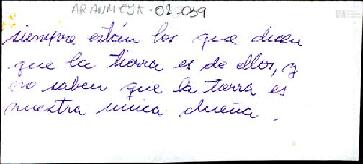 ARANMEJR-02.039
siempre están los que dicen
que la tierra es de ellos, y
no saben que la tierra es
nuestra única dueña.